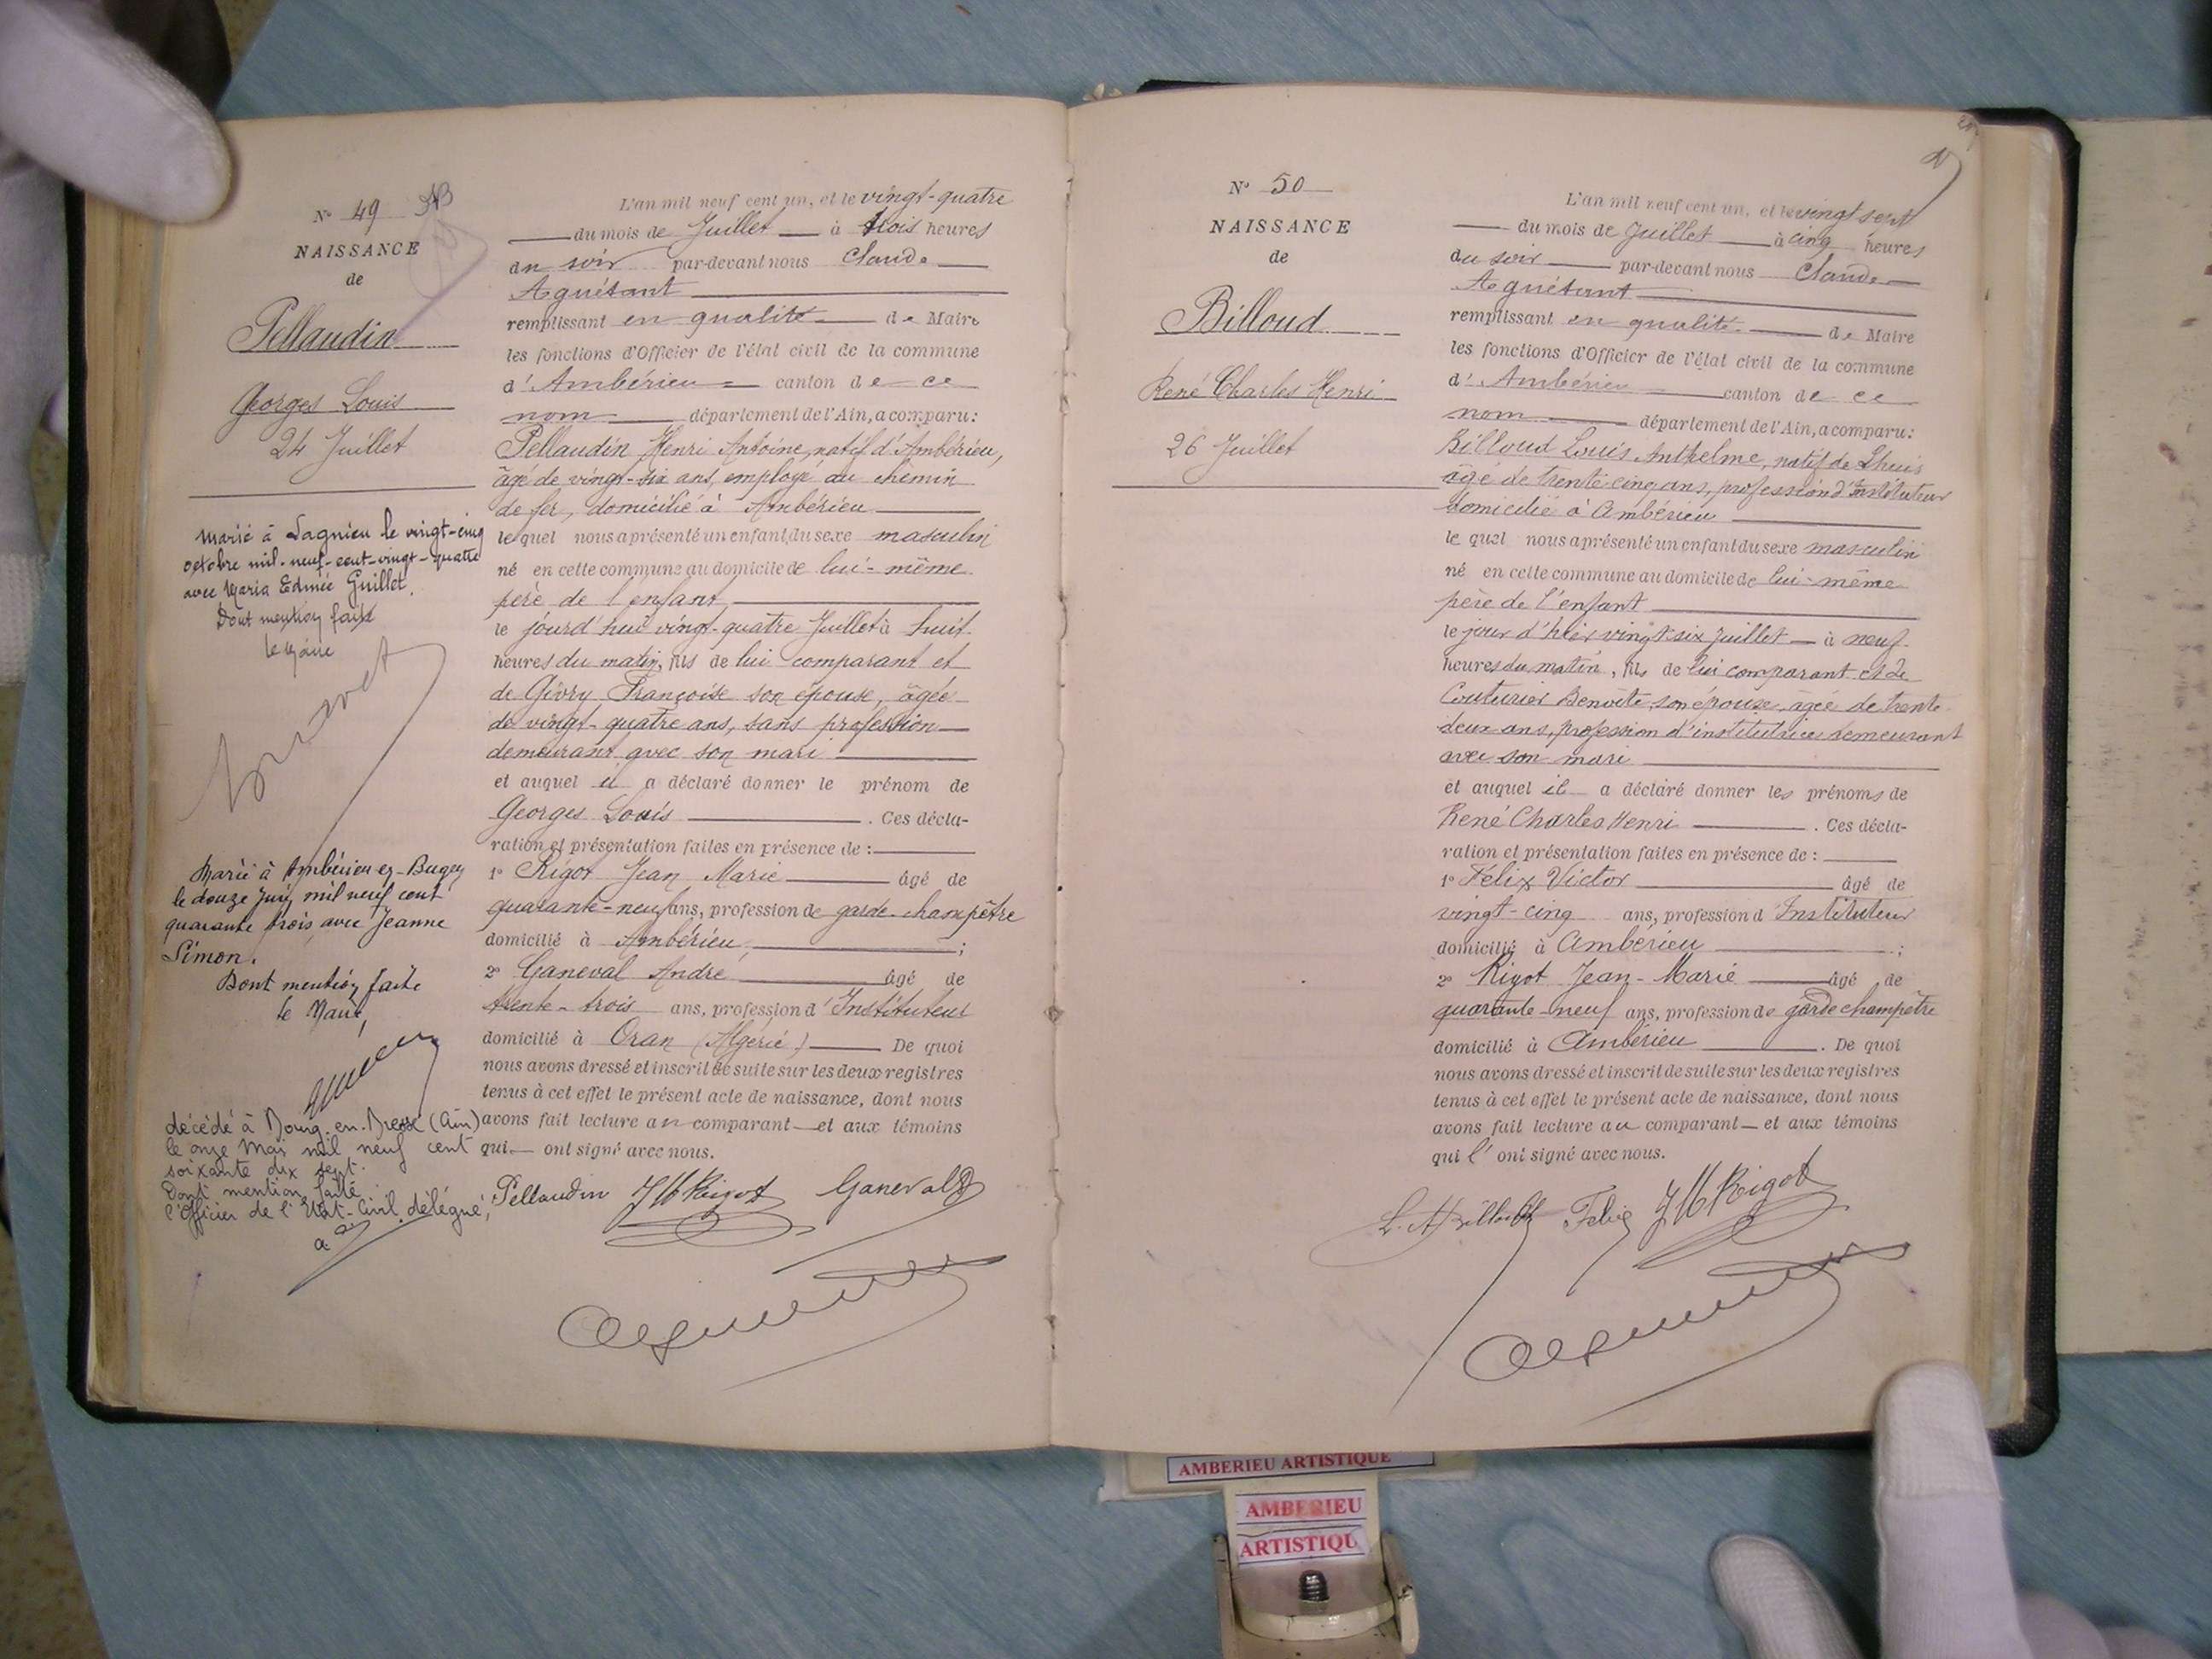 N° 49
NAISSANCE
de
Pellaudin
Georges Louis
24 Juillet
Marié à Lagnieu le vingt-cinq
octobre mil-neuf-cent-vingt-quatre
avec Maria Edmée Guillet.
Dont mention faite
le Maire
Marié à Ambérieu-en-Bugey
le douze Juin mil neuf cent
quarante trois avec Jeanne
Simon.
Dont mention faite
le Maire,
décédé à Bourg-en-Bresse (Ain)
le onze Mai mil neuf cent
soixante dix sept.
Dont mention faite
l'Officier de l'Etat-Civil délégué,
L'an mil neuf cent un, et le vingt-quatre
du mois de Juillet à trois heures
du soir par-devant nous Claude
Aguétant
remplissant en qualité de Maire
les fonctions d'Officier de l'état civil de la commune
d'Ambérieu canton de ce
nom département de l'Ain, a comparu:
Pellaudin Henri Antoine, natif d'Ambérieu,
âgé de vingt-six ans, employé au chemin
de fer, domicilié à Ambérieu
lequel nous a présenté un enfant du sexe masculin
né en cette commune au domicile de lui-même
père de l'enfant
le jourd'hui vingt-quatre Juillet à huit
heures du matin, fils de lui comparant et
de Givry Françoise son épouse, âgée
de vingt-quatre ans, sans profession
demeurant avec son mari
et auquel il a déclaré donner le prénom de
Georges Louis. Ces décla-
ration et présentation faites en présence de :
1° Rigot Jean Marie âgé de
quarante-neuf ans, profession de garde-champêtre
domicilié à Ambérieu ;
2° Ganeval André âgé de
trente-trois ans, profession d'Instituteur
domicilié à Oran (Algérie) De quoi
nous avons dressé et inscrit de suite sur les deux registres
tenus à cet effet le présent acte de naissance, dont nous
avons fait lecture au comparant et aux témoins
qui ont signé avec nous.
Pellaudin JM Rigot Ganeval
N° 50
NAISSANCE
de
Billoud
René Charles Henri
26 Juillet
L'an mil neuf cent un, et le vingt sept
du mois de Juillet à cinq heures
du soir par-devant nous Claude
Aguétant
remplissant en qualité de Maire
les fonctions d'Officier de l'état civil de la commune
d'Ambérieu canton de ce
nom département de l'Ain, a comparu:
Billoud Louis Anthelme, natif de Lhuis
âgé de trente-cinq ans, profession d'Instituteur
domicilié à Ambérieu
le quel nous a présenté un enfant du sexe masculin
né en cette commune au domicile de lui-même
père de l'enfant
le jour d'hier vingt six Juillet à neuf
heures du matin, fils de lui comparant et de
Couturier Benoîte, son épouse, âgée de trente
deux ans, profession d'institutrice demeurant
avec son mari
et auquel il a déclaré donner les prénoms de
René Charles Henri. Ces décla-
ration et présentation faites en présence de :
1° Félix Victor âgé de
vingt-cinq ans, profession d'Instituteur
domicilié à Ambérieu ;
2° Rigot Jean-Marie âgé de
quarante-neuf ans, profession de garde champêtre
domicilié à Ambérieu. De quoi
nous avons dressé et inscrit de suite sur les deux registres
tenus à cet effet le présent acte de naissance, dont nous
avons fait lecture au comparant et aux témoins
qui l'ont signé avec nous.
L. A. Billoud Felix JM Rigot
AMBERIEU ARTISTIQUE
AMBERIEU
ARTISTIQU